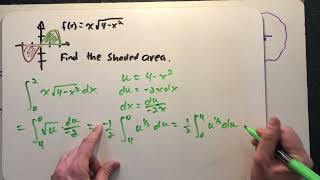 f(x) = x√(4-x²)
Find the shaded area.
∫₀² x√(4-x²) dx
u = 4-x²
du = -2xdx
dx = du/-2x
= ∫₄⁰ √u du/-2 = -1/2 ∫₄⁰ u^(1/2) du = 1/2 ∫₀⁴ u^(1/2) du =